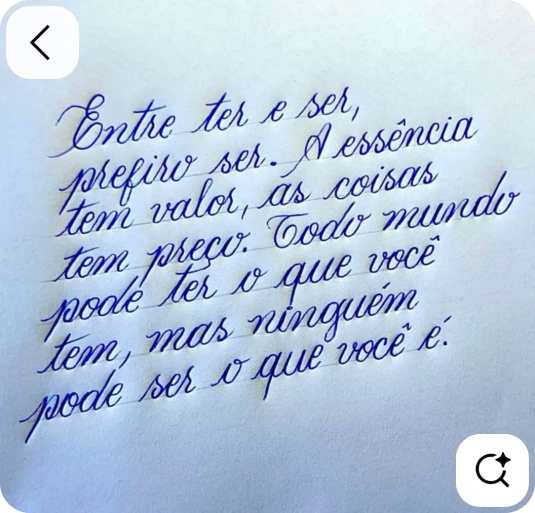 Entre ter e ser,
prefiro ser. A essência
tem valor, as coisas
tem preço. Todo mundo
pode ter o que você
tem, mas ninguém
pode ser o que você é.